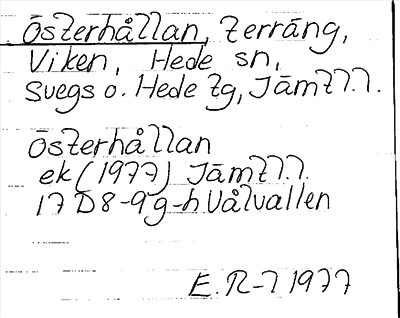 Österhållan, terräng,
Viken, Hede sn,
Svegs o. Hede tg, Jämtl.l.
Österhållan
ek (1977) Jämtl.l.
17 D 8-9g-h Vålvallen
E.R-l 1977